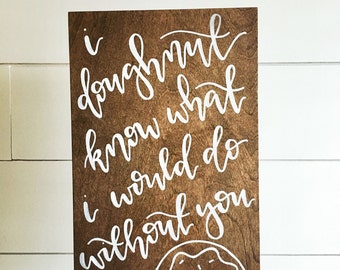 i
doughnut
know what
i would do
without you